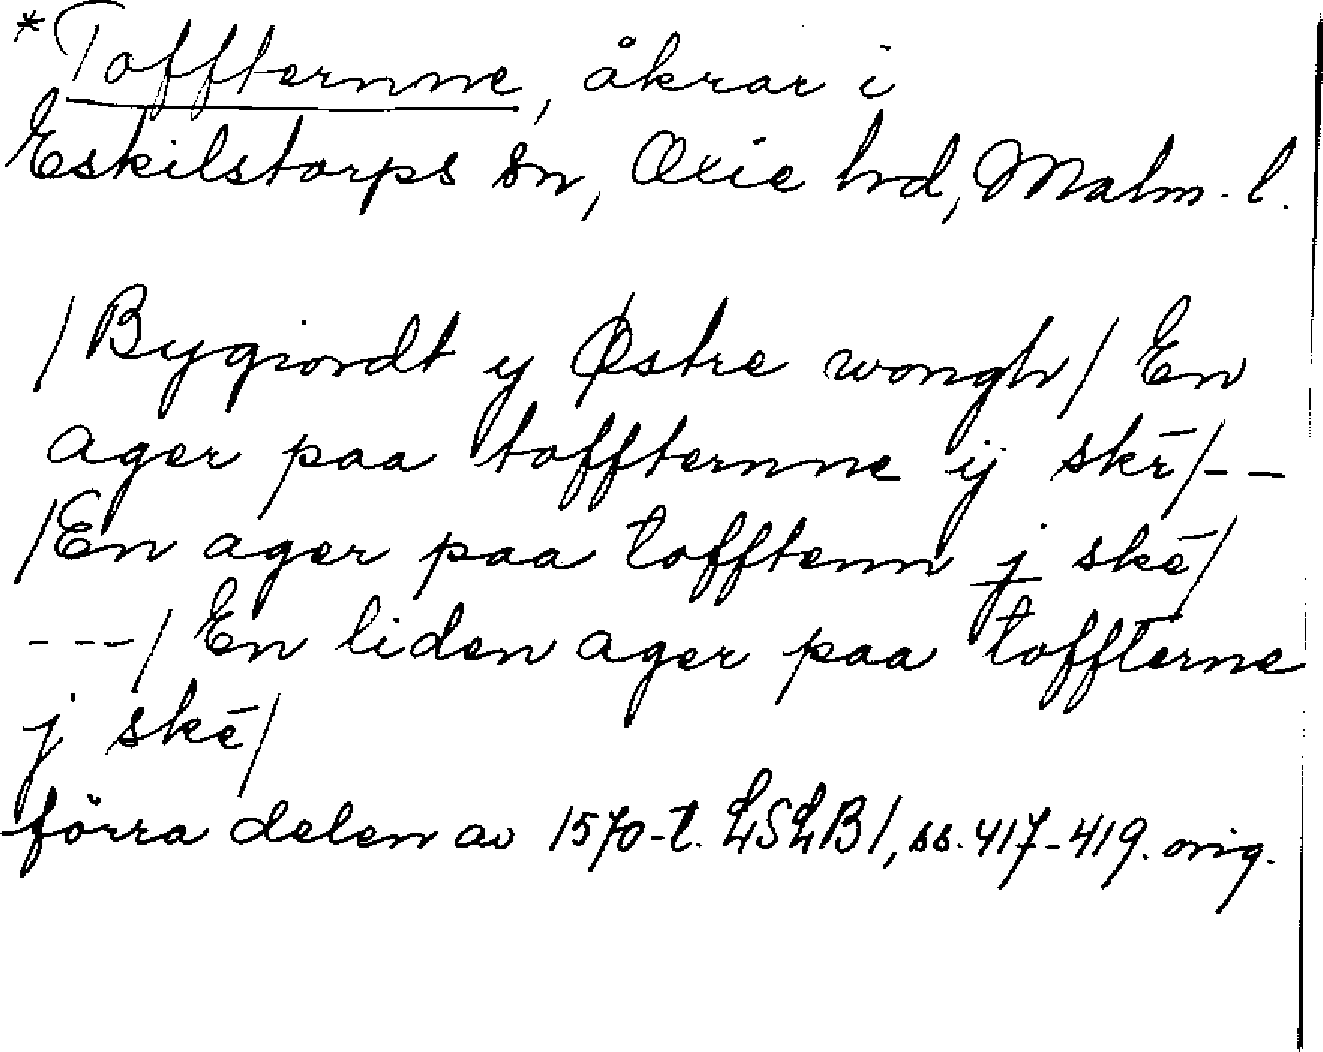 *Toffternne, åkrar i
Eskilstorps sn, Oxie hd, Malm. l.
/Bygiordt y Østre wongh/ En
ager paa toffternne ij skr̄/--
/En ager paa tofftenn j skē/
---/ En liden ager paa toffterne
j skē/
förra delen av 1570-t. LSLB1, ss. 417-419. orig.